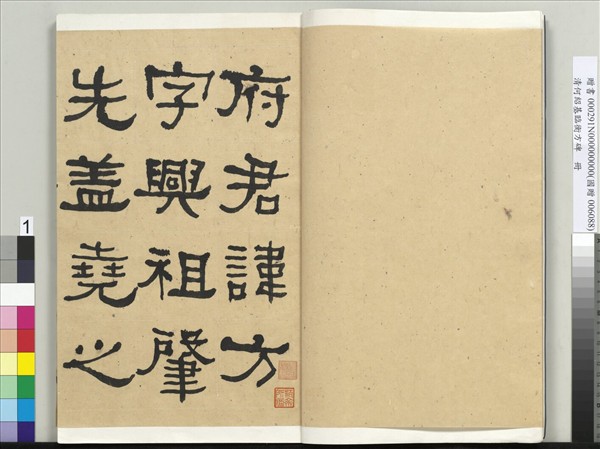 府君諱方
字興祖肇
先盖堯之
贈書 000291N000000000(國贈 006088)
清何紹基臨衡方碑 冊
1